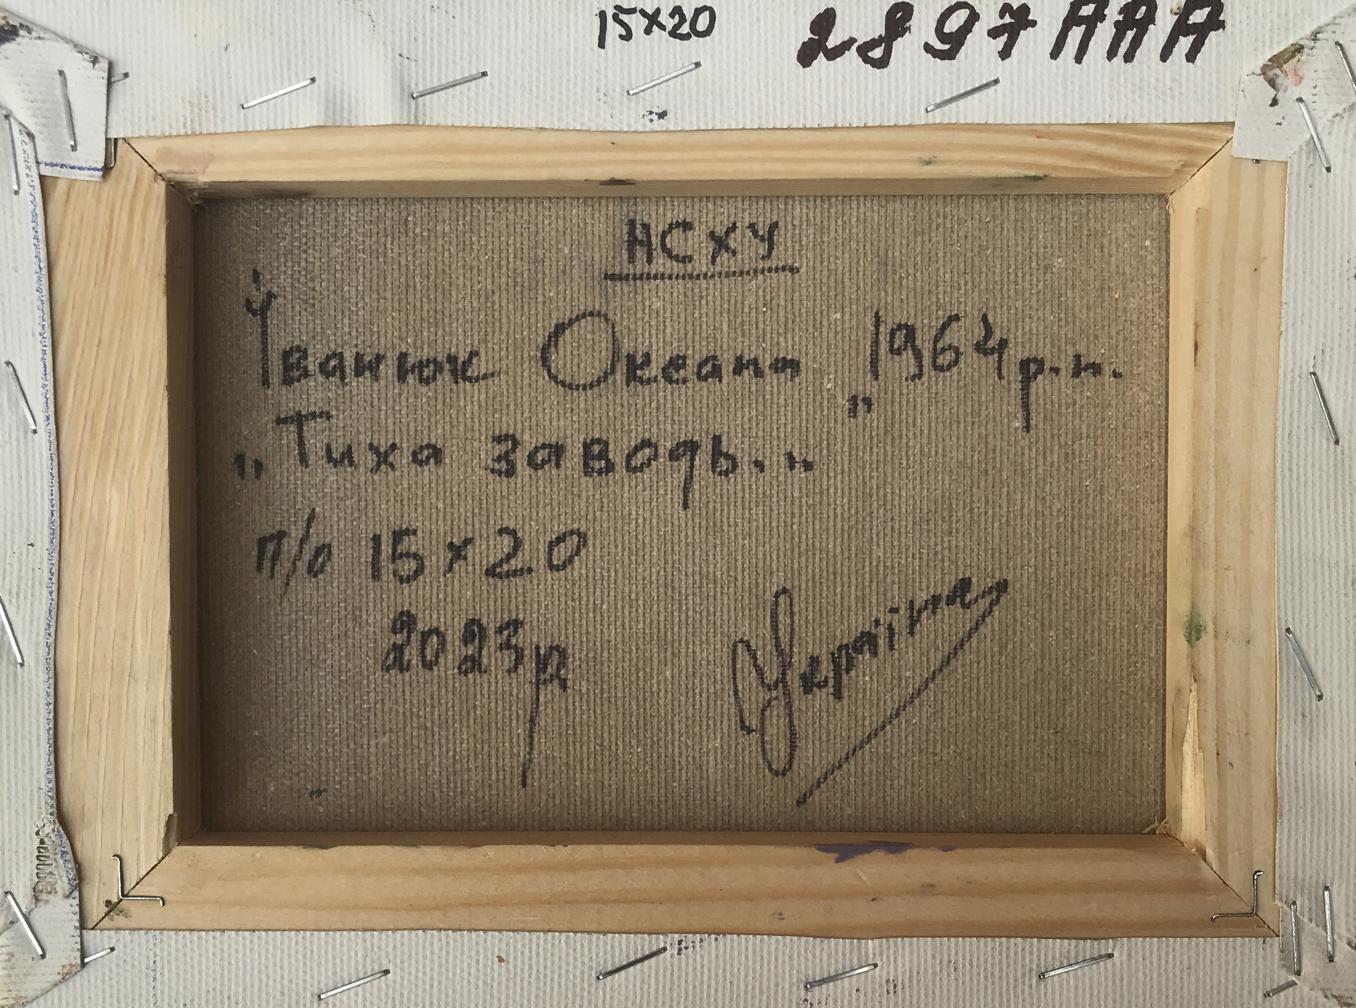 15x20 2897AAA
НСХУ
Іванюк Океана 1964 р.н.
„Тиха заводь.„
п/о 15x20
2023р
Україна